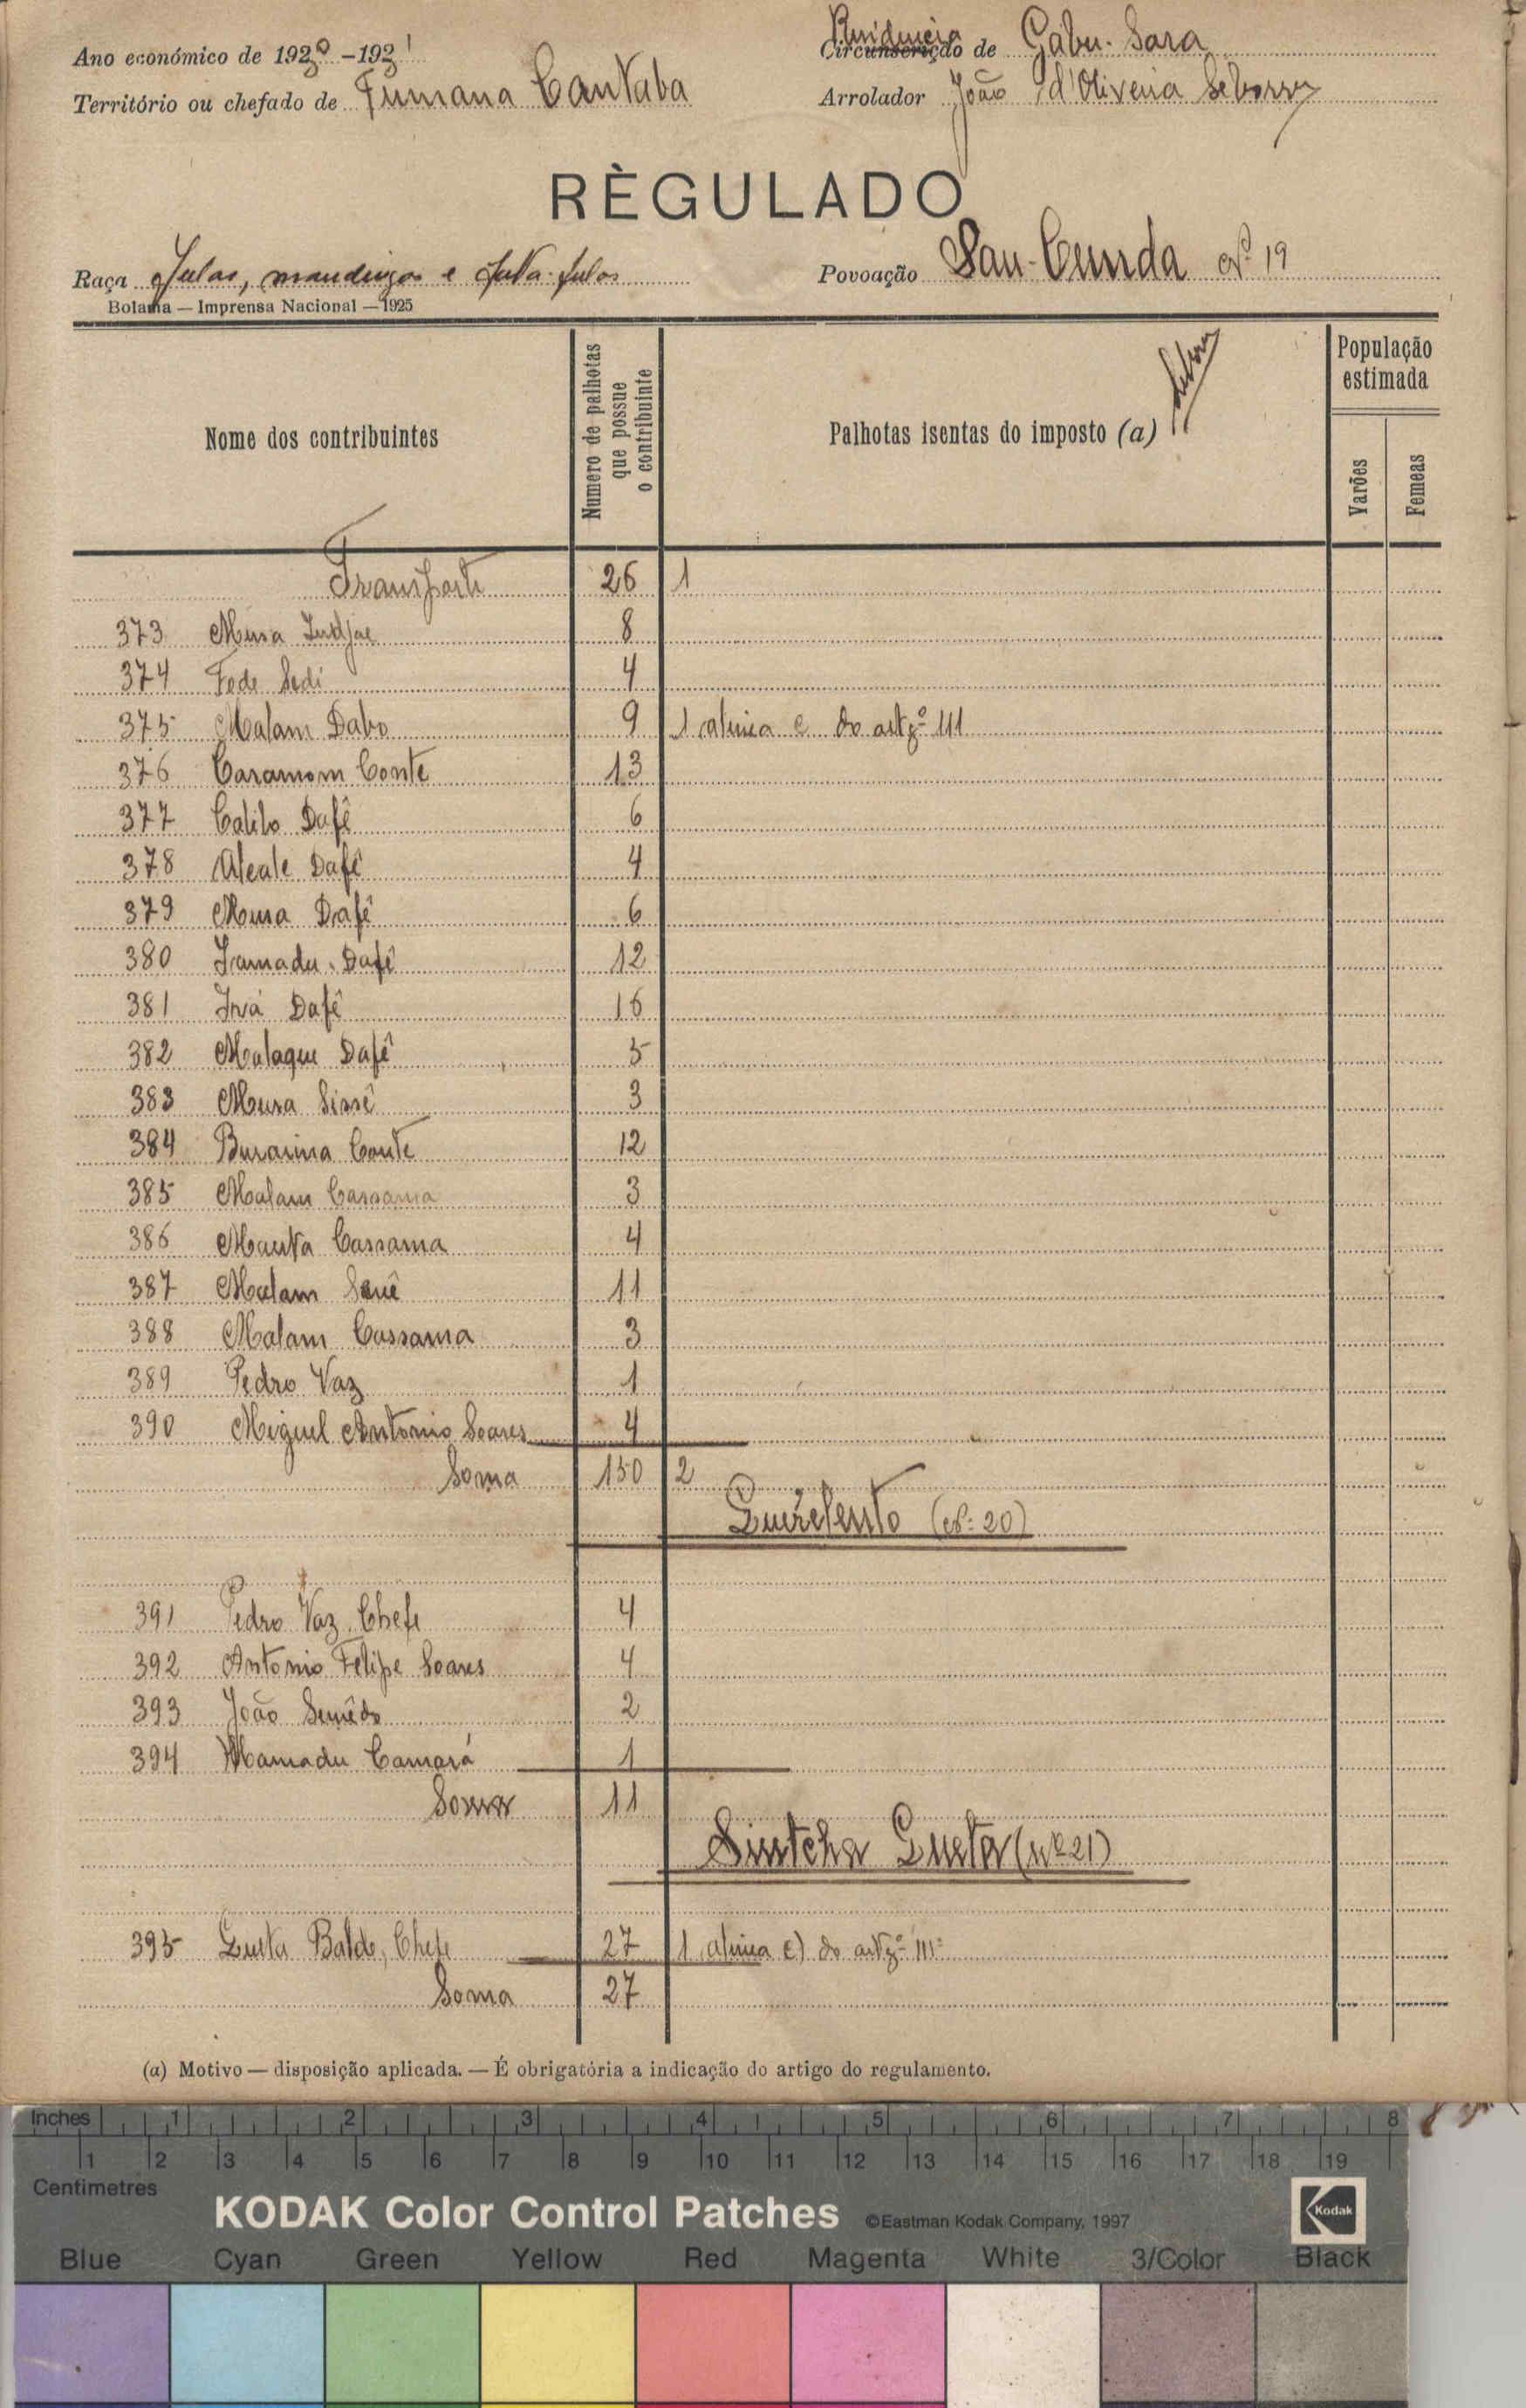 Ano económico de 1930-1931
Residencia
Circunscrição de Gabu-Sara
Território ou chefado de Tumana Cantaba
Arrolador João d'Oliveira
RÈGULADO
Raça Fulas, mandingas e futa-fulas
Povoação Sau-Cunda Nº 19
Bolama — Imprensa Nacional — 1925
Nome dos contribuintes
Numero de palhotas que possue o contribuinte
Palhotas isentas do imposto (a)
População estimada
Varões
Femeas
Transporte 26 1
373 Musa 8
374 Fode Sedi 4
375 Malam Dabo 9 1 alinea c do artgº 111
376 Caramom Conte 13
377 Calilo Dafê 6
378 Aleale Dafê 4
379 Musa Dafê 6
380 Iamadu Dafê 12
381 Dafê 16
382 Malaque Dafê 5
383 Musa Sissê 3
384 Buraima Conte 12
385 Malam Cassama 3
386 Mauta Cassama 4
387 Malam Sanê 11
388 Malam Cassama 3
389 Pedro Vaz 1
390 Miguel Antonio Soares 4
Soma 150 2
(Nº 20)
391 Pedro Vaz, Chefe 4
392 Antonio Felipe Soares 4
393 João Semêdo 2
394 Mamadu Camará 1
Soma 11
Sintcha Queta (Nº 21)
395 Queta Balde, Chefe 27 1 alinea c) do artgº 111º
Soma 27
(a) Motivo — disposição aplicada. — É obrigatória a indicação do artigo do regulamento.
Inches 1 2 3 4 5 6 7 8
1 2 3 4 5 6 7 8 9 10 11 12 13 14 15 16 17 18 19
Centimetres
KODAK Color Control Patches ©Eastman Kodak Company, 1997 Kodak
Blue Cyan Green Yellow Red Magenta White 3/Color Black